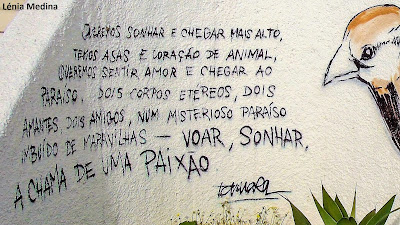 Lénia Medina
QUEREMOS SONHAR E CHEGAR MAIS ALTO,
TEMOS ASAS E CORAÇÃO DE ANIMAL,
QUEREMOS SENTIR AMOR E CHEGAR AO
PARAÍSO, DOIS CORPOS ETÉREOS, DOIS
AMANTES, DOIS AMIGOS, NUM MISTERIOSO PARAÍSO
IMBUÍDO DE MARAVILHAS — VOAR, SONHAR,
A CHAMA DE UMA PAIXÃO